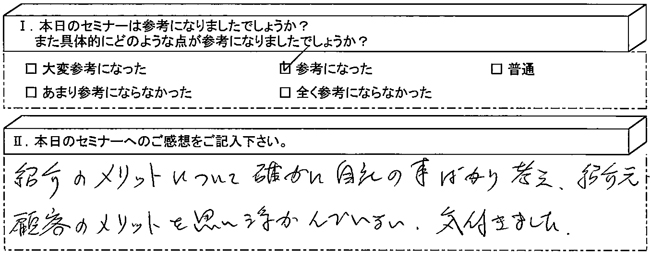 Ⅰ. 本日のセミナーは参考になりましたでしょうか?
また具体的にどのような点が参考になりましたでしょうか?
□ 大変参考になった ☑ 参考になった □ 普通
□ あまり参考にならなかった □ 全く参考にならなかった
Ⅱ. 本日のセミナーへのご感想をご記入下さい。
紹介のメリットについて確かに自社の事ばかり考え、紹介元
顧客のメリットを思い浮かんでいない、気付きました。